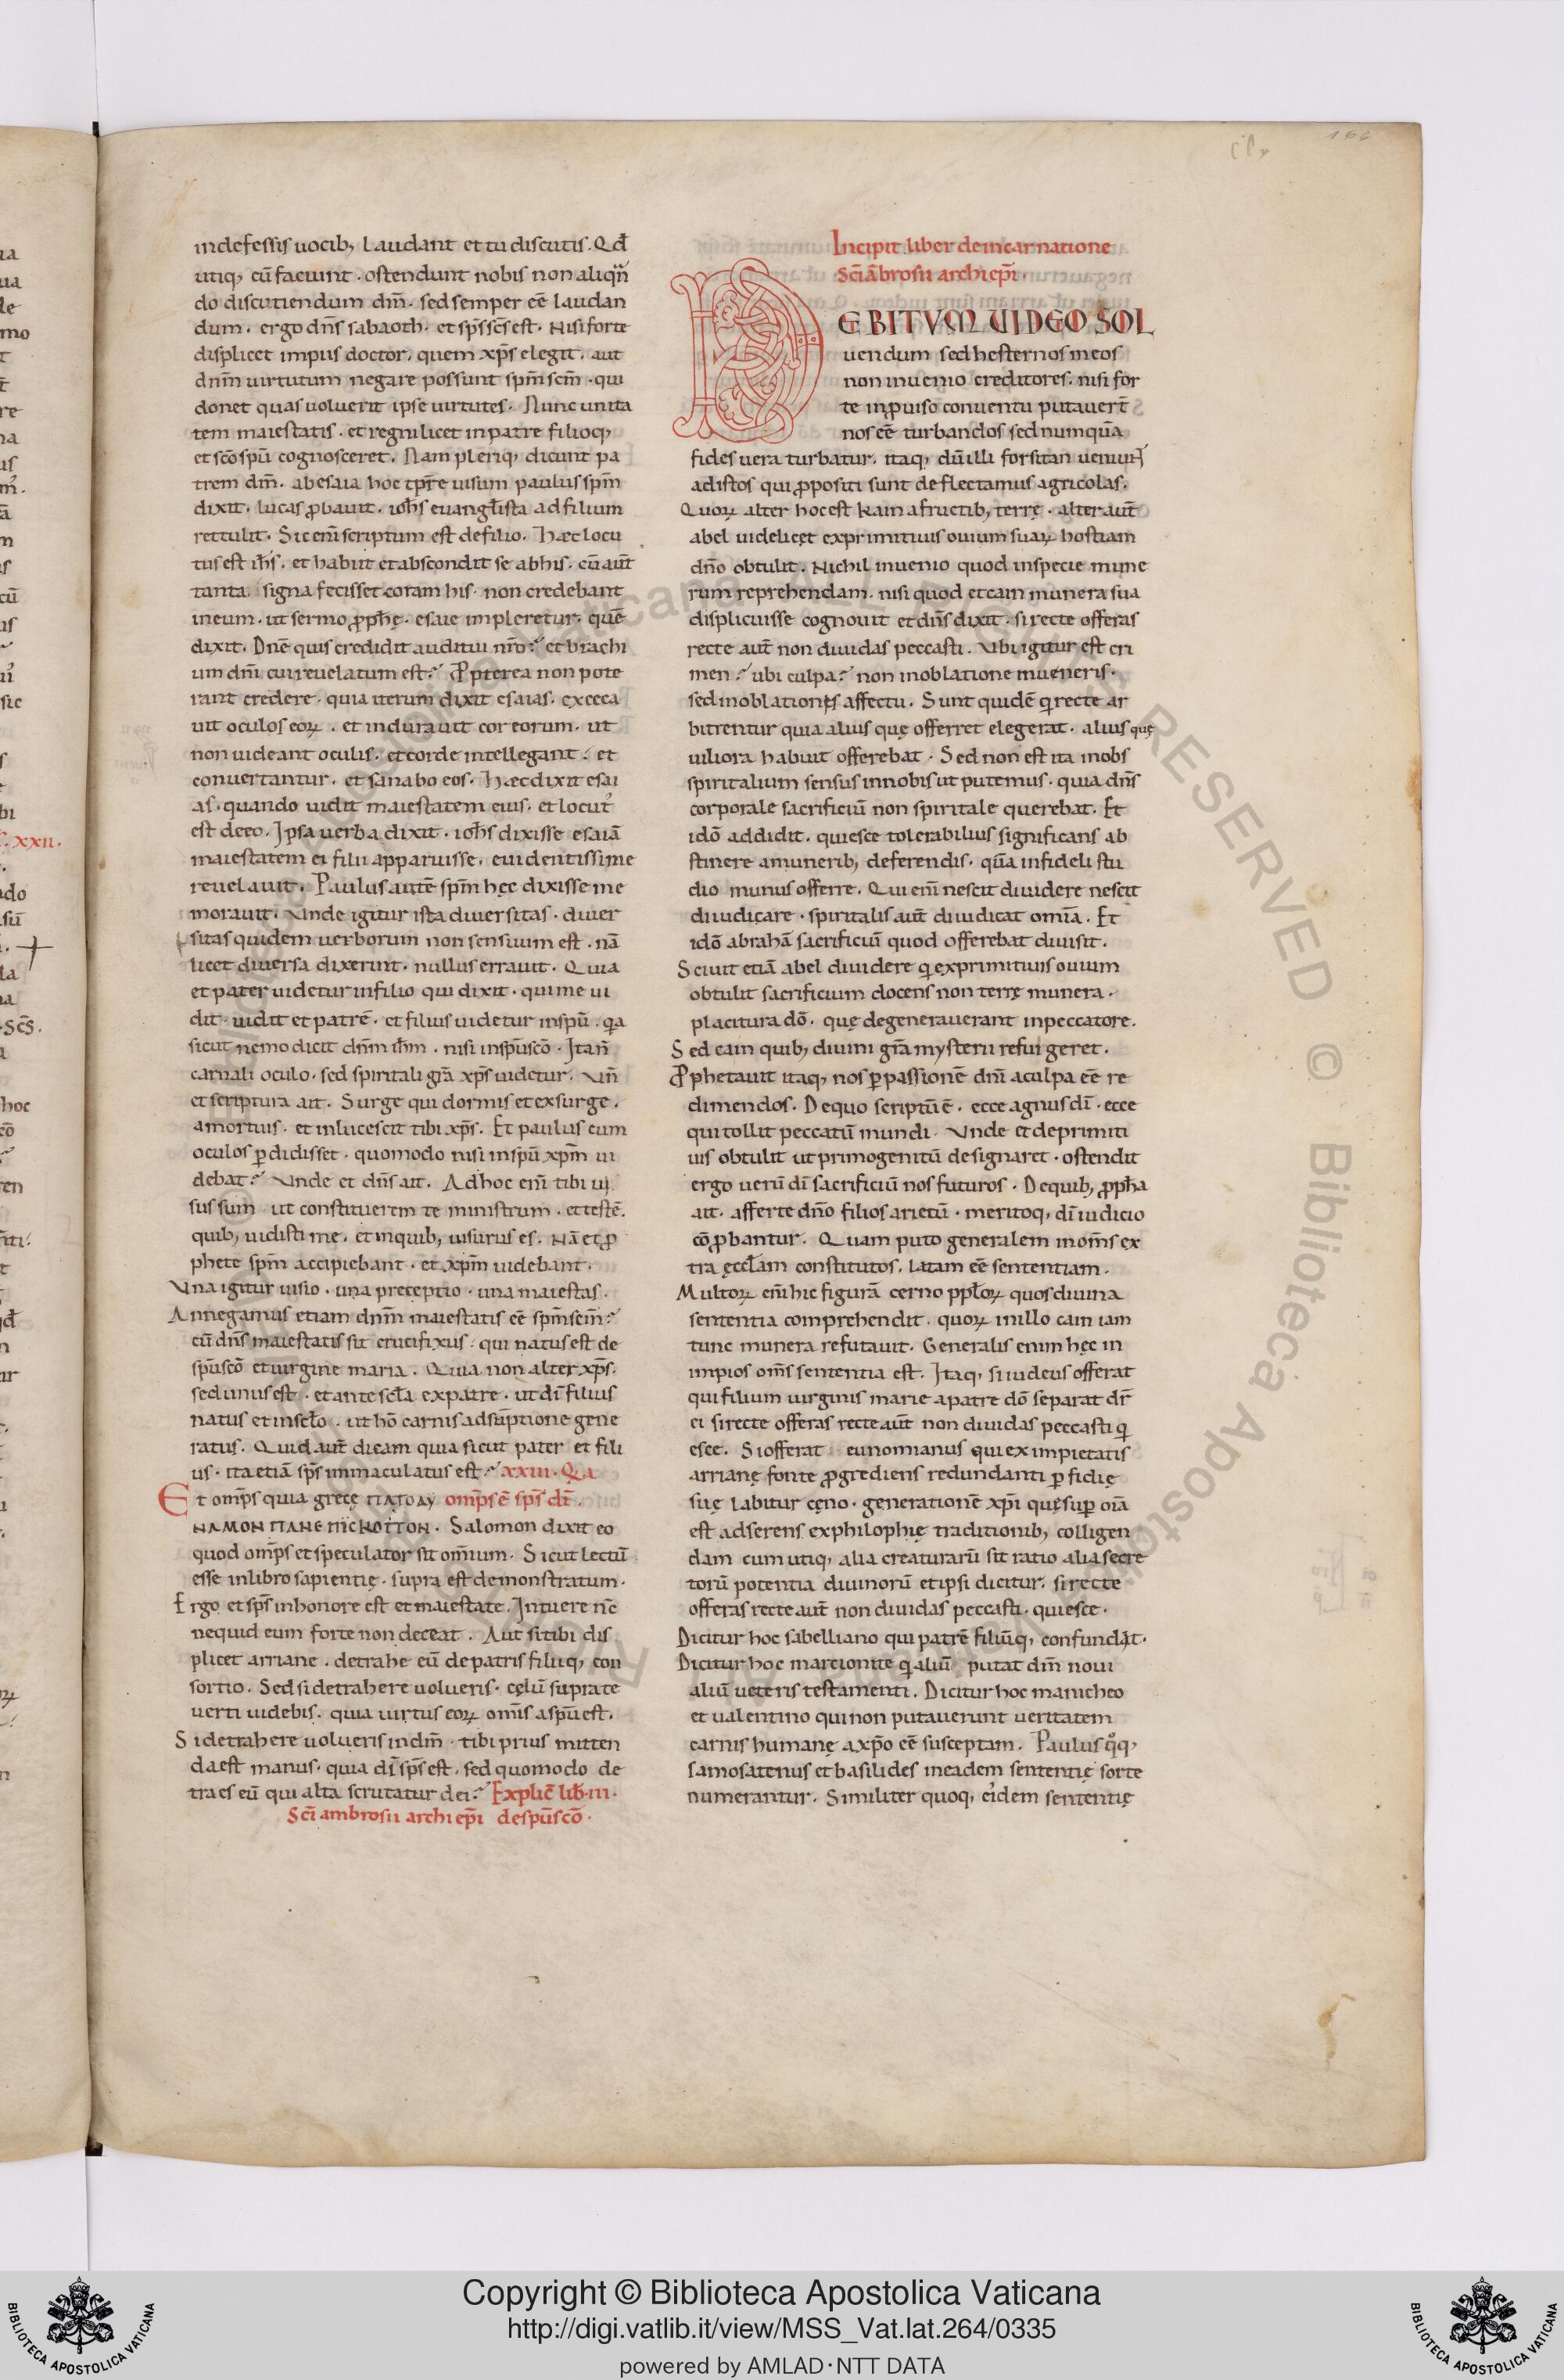 indefessis uocib; laudant et tu discutis. Qđ
utiq; cū faciunt. ostendunt nobis non aliqn̄
do discutiendum dm̄. sed semper eē laudan
dum. ergo dn̄s sabaoth. et sp̄s sc̄s est. Nisi forte
displicet impiis doctor. quem xp̄s elegit. aut
dnm̄ uirtutum negare possunt spm̄ scm̄. qui
donet quas uoluerit ipse uirtutes. Nunc unita
tem maiestatis. et regni licet in patre filioq;
et sc̄o spū cognosceret. Nam pleriq; dicunt pa
trem dm̄. ab esaia hoc tp̄re uisum paulus spm̄
dixit. lucas ꝓbauit. ioh̄s euangl̄ista ad filium
rettulit. Sic eni̅ scriptum est de filio. Hæc locu
tus est ih̄s. et habiit et abscondit se ab his. cū aut̄
tanta signa fecisset coram his. non credebant
in eum. ut sermo ꝓph̄ę. esaie impleretur. quē
dixit. Dn̄e quis credidit auditui nr̄o? et brachi
um dnī cui reuelatum est? Ꝓpterea non pote
rant credere. quia iterum dixit esaias. exceca
uit oculos eoꝝ. et indurauit cor eorum. ut
non uideant oculis. et corde intellegant. et
conuertantur. et sanabo eos. Hæc dixit esai
as. quando uidit maiestatem eius. et locut᾽
est de eo. Ipsa uerba dixit. ioh̄s dixisse esaiā
maiestatem ei filii apparuisse. euidentissime
reuelauit. Paulus autē spm̄ hęc dixisse me
morauit. Unde igitur ista diuersitas. diuer
sitas quidem uerborum non sensuum est. nā
licet diuersa dixerint. nullus errauit. Quia
et pater uidetur in filio qui dixit. qui me ui
dit. uidit et patrē. et filius uidetur in spū. qa
sicut nemo dicit dnm̄ ihm̄. nisi in spū sc̄o. Itan̄
carnali oculo. sed spiritali gr̄a xp̄s uidetur. Un̄
et scriptura ait. Surge qui dormis et exsurge.
a mortuis. et inlucescit tibi xp̄s. Et paulus cum
oculos ꝑdidisset. quomodo nisi in spū xpm̄ ui
debat? Unde et dn̄s ait. Ad hoc eni̅ tibi ui
sus sum ut constituerem te ministrum. et testē.
quib; uidisti me. et in quib; uisurus es. Nā et ꝓ
phete spm̄ accipiebant. et xpm̄ uidebant.
Una igitur uisio. una preceptio. una maiestas.
An negamus etiam dnm̄ maiestatis eē spm̄ scm̄?
cū dn̄s maiestatis sit crucifixus. qui natus est de
spū sc̄o et uirgine maria. Quia non alter xp̄s.
sed unus est. et ante scl̄a ex patre. ut dī filius
natus et in scl̄o. ut hō carnis adsūptione gene
ratus. Quid aut̄ dicam quia sicut pater et fili
us. ita etiā sp̄s immaculatus est? XXIII. Qa
Et omp̄s quia grecę ΠΑΤΟΔΥ omp̄s ē sp̄s dī.
ΝΑΜΟΝ ΠΑΝΕΠΙCΚΟΙΤΟΝ. Salomon dixit eo
quod omp̄s et speculator sit omīum. Sicut lectū
esse in libro sapientię. supra est demonstratum.
Ergo et sp̄s in honore est et maiestate. Intuere nc̄
nequid eum forte non deceat. Aut si tibi dis
plicet arriane. detrahe eū de patris filiiq; con
sortio. Sed si detrahere uolueris. cęlū supra te
uerti uidebis. quia uirtus eoꝝ omīs a spū est.
Si detrahere uolueris in dm̄. tibi prius mitten
da est manus. quia dī sp̄s est. sed quomodo de
traes eū qui alta scrutatur dei? Explic̄ lib̄. III.
Sc̄i ambrosii archiep̄i de spū sc̄o.
Incipit liber de incarnatione
Sc̄i āmbrosii archiep̄i.
DEBITVM UIDEO SOL
uendum sed hesternos meos
non inuenio creditores. nisi for
te inꝓuiso conuentu putauert̄
nos eē turbandos sed numquā
fides uera turbatur. itaq; dū illi forsitan ueniun̄t
ad istos qui ꝓpositi sunt deflectamus agricolas.
Quoꝝ alter hoc est kain a fructib; terrę. alter aut̄
abel uidelicet ex primitiuis ouium suaꝝ hostiam
dn̄o obtulit. Nichil inuenio quod in specie mune
rum reprehendam. nisi quod et cain munera sua
displicuisse cognouit et dn̄s dixit. si recte offeras
recte aut̄ non diuidas peccasti. Ubi igitur est cri
men? ubi culpa? non in oblatione mueneris.
sed in oblationes affectu. Sunt quidē qi recte ar
bitrentur quia alius quę offerret elegerat. alius quę
uiliora habuit offerebat. Sed non est ita inobs
spiritalium sensus in nobis ut putemus. quia dn̄s
corporale sacrificiū non spiritale querebat. Et
idō addidit. quiesce tolerabilius significans ab
stinere a munerib; deferendis. quā infideli stu
dio munus offerre. Qui eni̅ nescit diuidere nescit
diiudicare. spiritalis aut̄ diiudicat omīa. Et
idō abrahā sacrificiū quod offerebat diuisit.
Sciuit etiā abel diuidere qi ex primitiuis ouium
obtulit sacrificium docens non terrę munera.
placitura dō. quę degenerauerant in peccatore.
Sed cain quib; diuini gr̄a mysterii refulgeret.
Ꝓphetauit itaq; nos ꝑ passionē dnī a culpa eē re
dimendos. De quo scriptū ē. ecce agnus dī. ecce
qui tollit peccatū mundi. Unde et de primiti
uis obtulit ut primogenitū designaret. ostendit
ergo uerū dī sacrificiū nos futuros. De quib; ꝓph̄a
ait. afferte dn̄o filios arietū. meritoq; dī iudicio
cōꝓbantur. Quam puto generalem in om̄s ex
tra ęccl̄am constitutos. latam eē sententiam.
Multoꝝ eni̅ hic figurā cerno ppl̄oꝝ quos diuina
sententia comprehendit. quoꝝ in illo cain iam
tunc munera refutauit. Generalis enim hęc in
impios om̄s sententia est. Itaq; si iudeus offerat
qui filium uirginis marie a patre dō separat dr̄
ei si recte offeras recte aut̄ non diuidas peccasti qi
esce. Si offerat eunomianus qui ex impietatis
arrianę fonte ꝓgrediens redundanti ꝑfidię
suę labitur cęno. generationē xp̄i quę suꝑ oīa
est adserens ex philophię traditionib; colligen
dam cum utiq; alia creaturarū sit ratio alia secre
torū potentia diuinorū et ipsi dicitur. si recte
offeras recte aut̄ non diuidas peccasti. quiesce.
Dicitur hoc sabelliano qui patrē filiūq; confundat.
Dicitur hoc marcionite qi aliū putat dm̄ noui
aliū ueteris testamenti. Dicitur hoc manicheo
et ualentino qui non putauerunt ueritatem
carnis humanę a xp̄o eē susceptam. Paulus qoq;
samosatenus et basilides in eadem sententię sorte
numerantur. Similiter quoq; ei᾽dem sententię
Copyright © Biblioteca Apostolica Vaticana
http://digi.vatlib.it/view/MSS_Vat.lat.264/0335
powered by AMLAD·NTT DATA